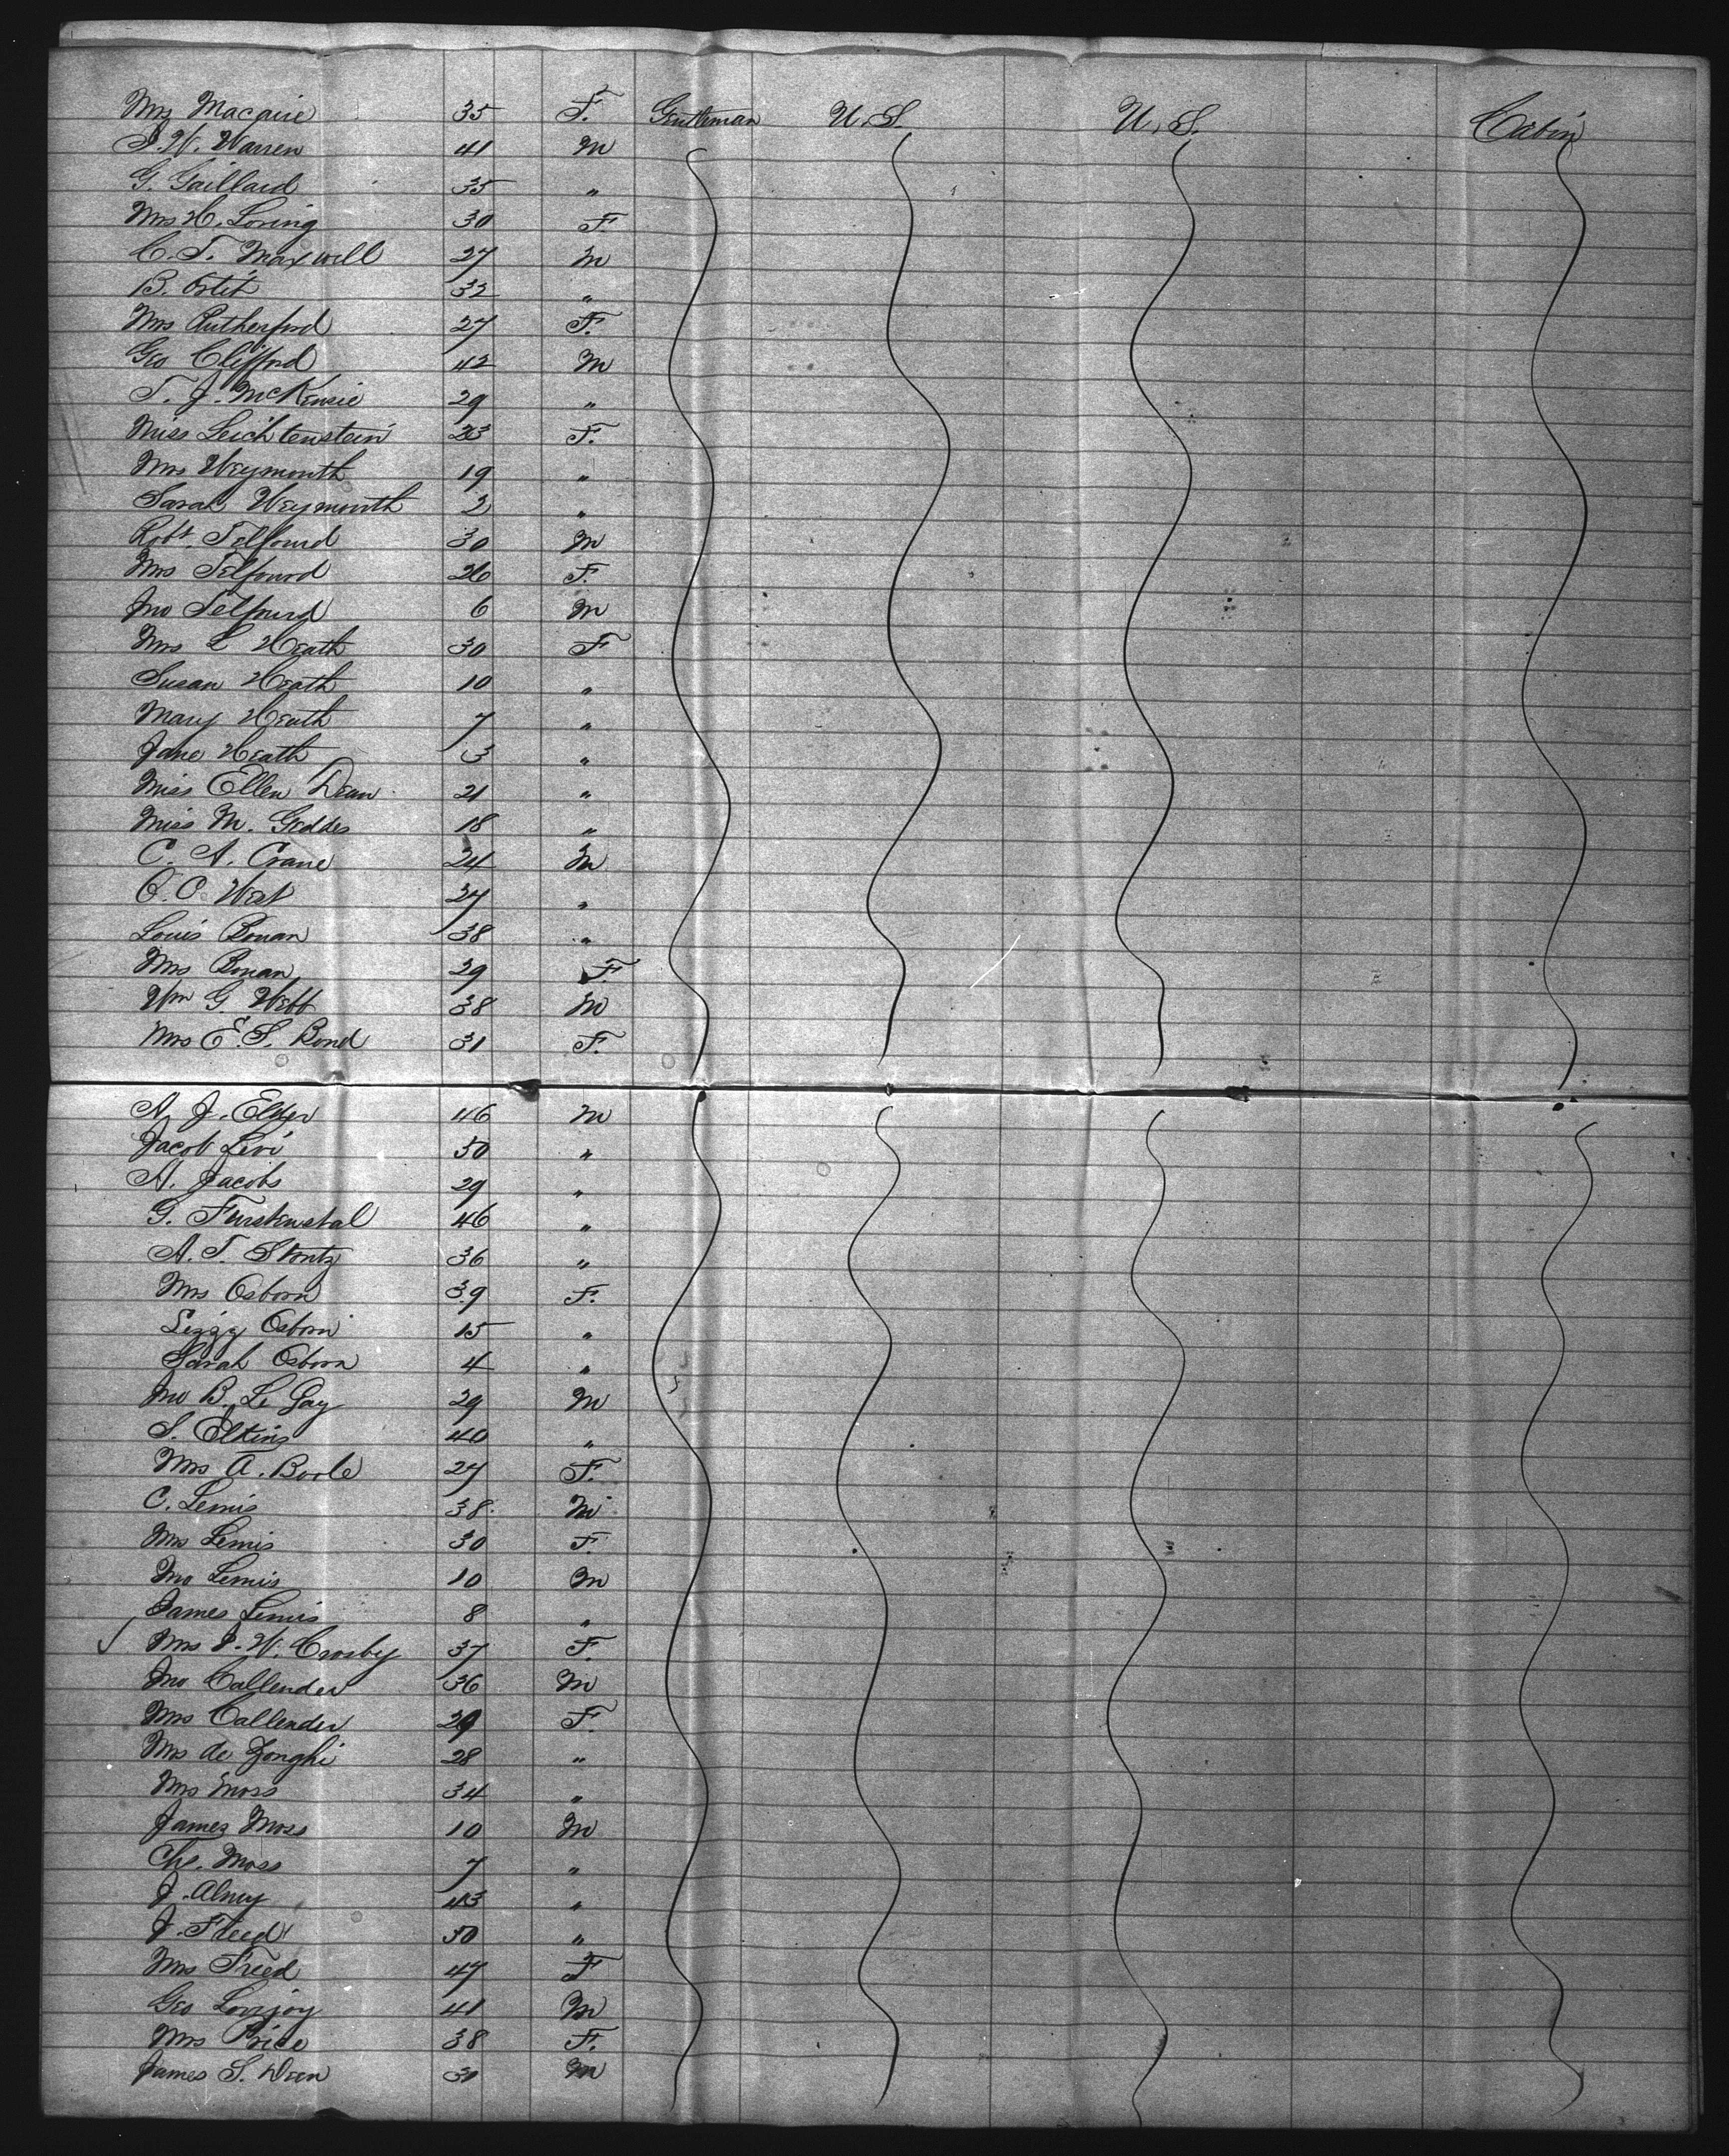 Mrs Macaire 35 F. Gentleman U.S. U.S. Cabin
J. W. Warren 41 M
G. Gaillard 35 "
Mrs H. Loring 30 F.
C. T. Maxwell 27 M
B. 32 "
Mrs Rutherford 27 F.
Geo Clifford 42 M
T. J. McKensie 29 "
Miss Leichtenstein 23 F.
Mrs Weymouth 19 "
Sarah Weymouth 2 "
Robt. Telfourd 30 M
Mrs Telfourd 26 F.
Jno Telfourd 6 M
Mrs L Heath 30 F
Susan Heath 10 "
Mary Heath 7 "
Jane Heath 3 "
Miss Ellen Dean 21 "
Miss M. Geddes 18 "
C. A. Crane 24 M
C. West 27 "
Louis Bonan 38 "
Mrs Bonan 29 F.
Wm G. Webb 38 M
Mrs E. S. Bond 31 F.
J. Elder 46 M
Jacob Levi 30 "
A. Jacobs 29 "
G. Furstenstal 46 "
A. T. Stontz 36 "
Mrs Osborn 39 F.
Lizzy Osborn 15 "
Sarah Osborn 4 "
Jno B. Le Gay 29 M
S. Elkins 40 "
Mrs A. Boole 27 F.
C. Lemis 38 M
Mrs Lemis 30 F.
Jno Lemis 10 M
James Lemis 8 "
Mrs J. W. Crosby 37 F.
Jno Callender 36 M
Mrs Callender 29 F.
Mrs de Zonghi 28 "
Mrs Moss 34 "
James Moss 10 M
Chs. Moss 7 "
J. Almy 43 "
J. Freed 50 "
Mrs Freed 47 F
Geo Lovejoy 41 M
Mrs Price 38 F.
James S. Deen 30 M